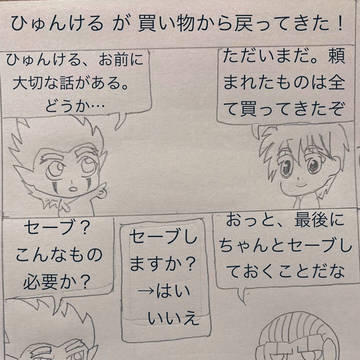 ひゅんける が 買い物から戻ってきた！
ただいまだ。頼
まれたものは全
て買ってきたぞ
ひゅんける、お前に
大切な話がある。
どうか…
おっと、最後に
ちゃんとセーブし
ておくことだな
セーブし
ますか？
→はい
いいえ
セーブ？
こんなもの
必要か？